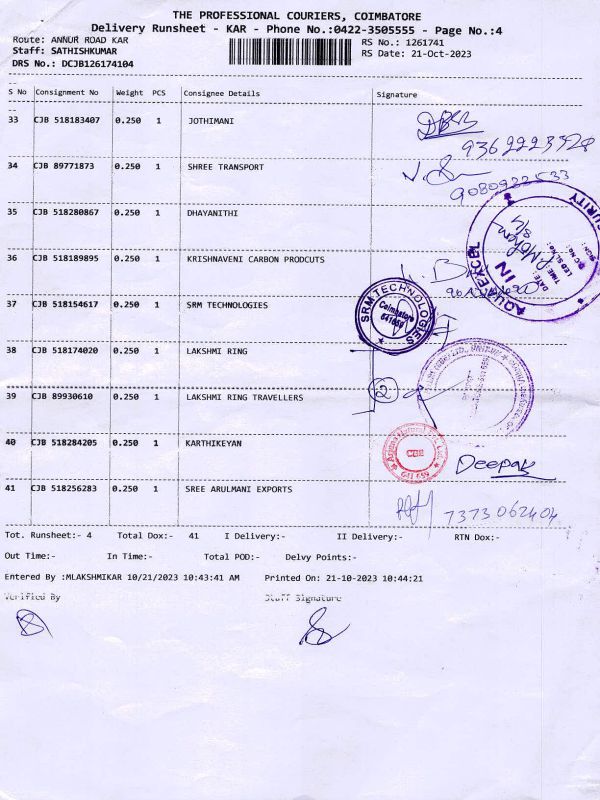 THE PROFESSIONAL COURIERS, COIMBATORE
Delivery Runsheet - KAR - Phone No.:0422-3505555 - Page No.:4
Route: ANNUR ROAD KAR
RS No.: 1261741
Staff: SATHISHKUMAR
RS Date: 21-Oct-2023
DRS No.: DCJB126174104
S No Consignment No Weight PCS Consignee Details Signature
33 CJB 518183407 0.250 1 JOTHIMANI
9362223328
34 CJB 89771873 0.250 1 SHREE TRANSPORT
9080922533
35 CJB 518280867 0.250 1 DHAYANITHI
AQUA EXCEL
IN
SECURITY
TIME:
DATE:
36 CJB 518189895 0.250 1 KRISHNAVENI CARBON PRODCUTS
37 CJB 518154617 0.250 1 SRM TECHNOLOGIES
SRM TECHNOLOGIES
Coimbatore
641659
38 CJB 518174020 0.250 1 LAKSHMI RING
39 CJB 89930610 0.250 1 LAKSHMI RING TRAVELLERS
2
40 CJB 518284205 0.250 1 KARTHIKEYAN
CBE
641 659
Deepak
41 CJB 518256283 0.250 1 SREE ARULMANI EXPORTS
7373062404
Tot. Runsheet:- 4 Total Dox:- 41 I Delivery:- II Delivery:- RTN Dox:-
Out Time:- In Time:- Total POD:- Delvy Points:-
Entered By :MLAKSHMIKAR 10/21/2023 10:43:41 AM Printed On: 21-10-2023 10:44:21
Verified By Staff Signature